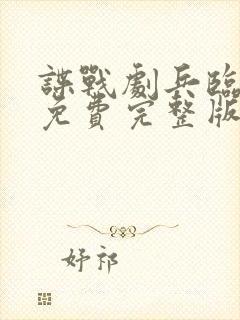 諜戰劇兵臨
免費完整版
妤祁